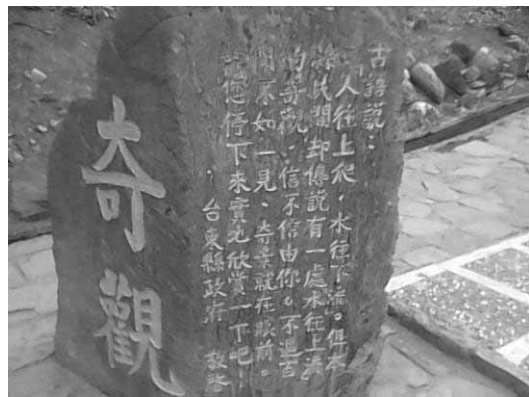 古語說：
人往上爬，水往下流。但本
縣民間却傳說有一處水往上流
的奇觀，信不信由你。不過百
聞不如一見，奇景就在眼前。
請您停下來實地欣賞一下吧！
台東縣政府 敬啓
奇觀